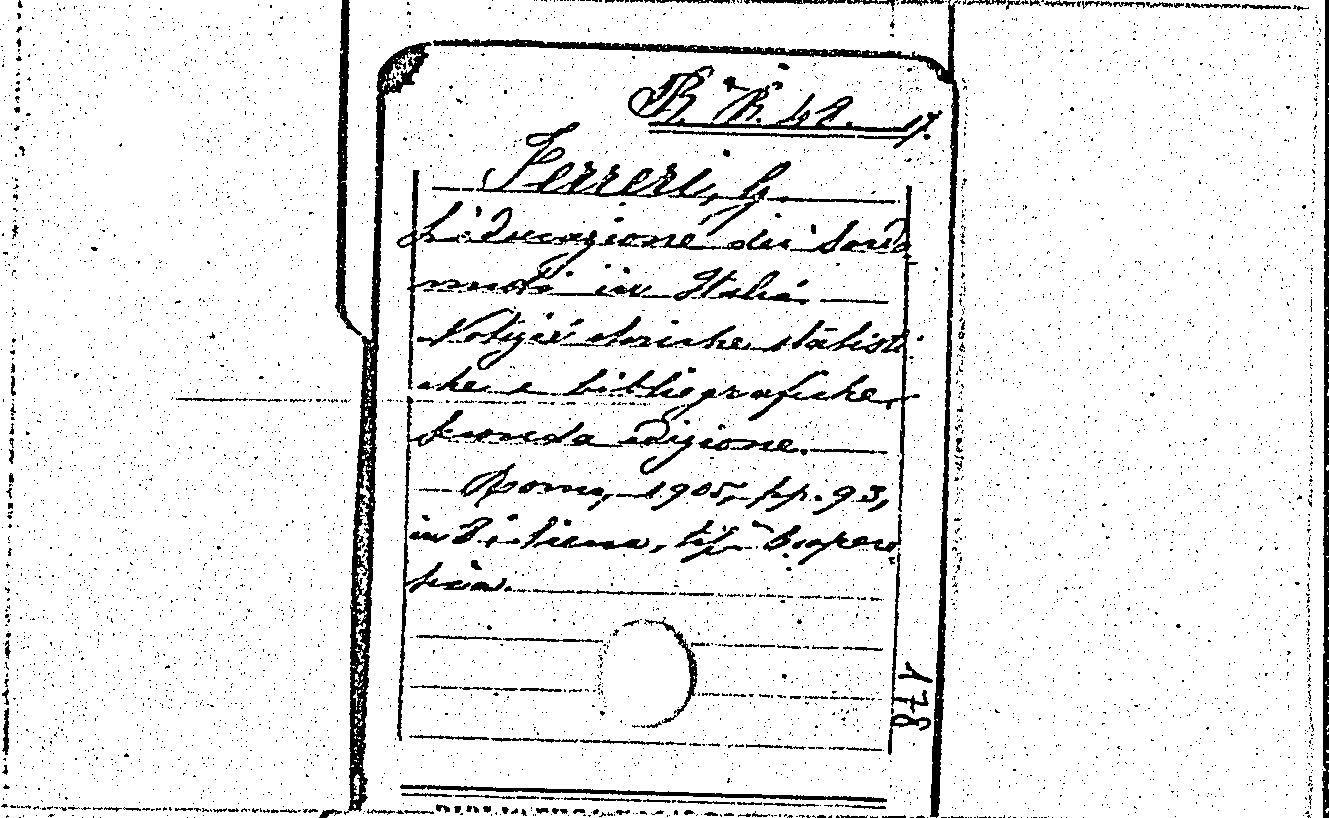 R. R. 42. 17.
Ferreri, G.
L'educazione dei Sordo
muti in Italia.
Notizie storiche statisti
che e bibliografiche,
seconda edizione.
Roma, 1905, pp. 93,
in 8.º tip. Coopera
178